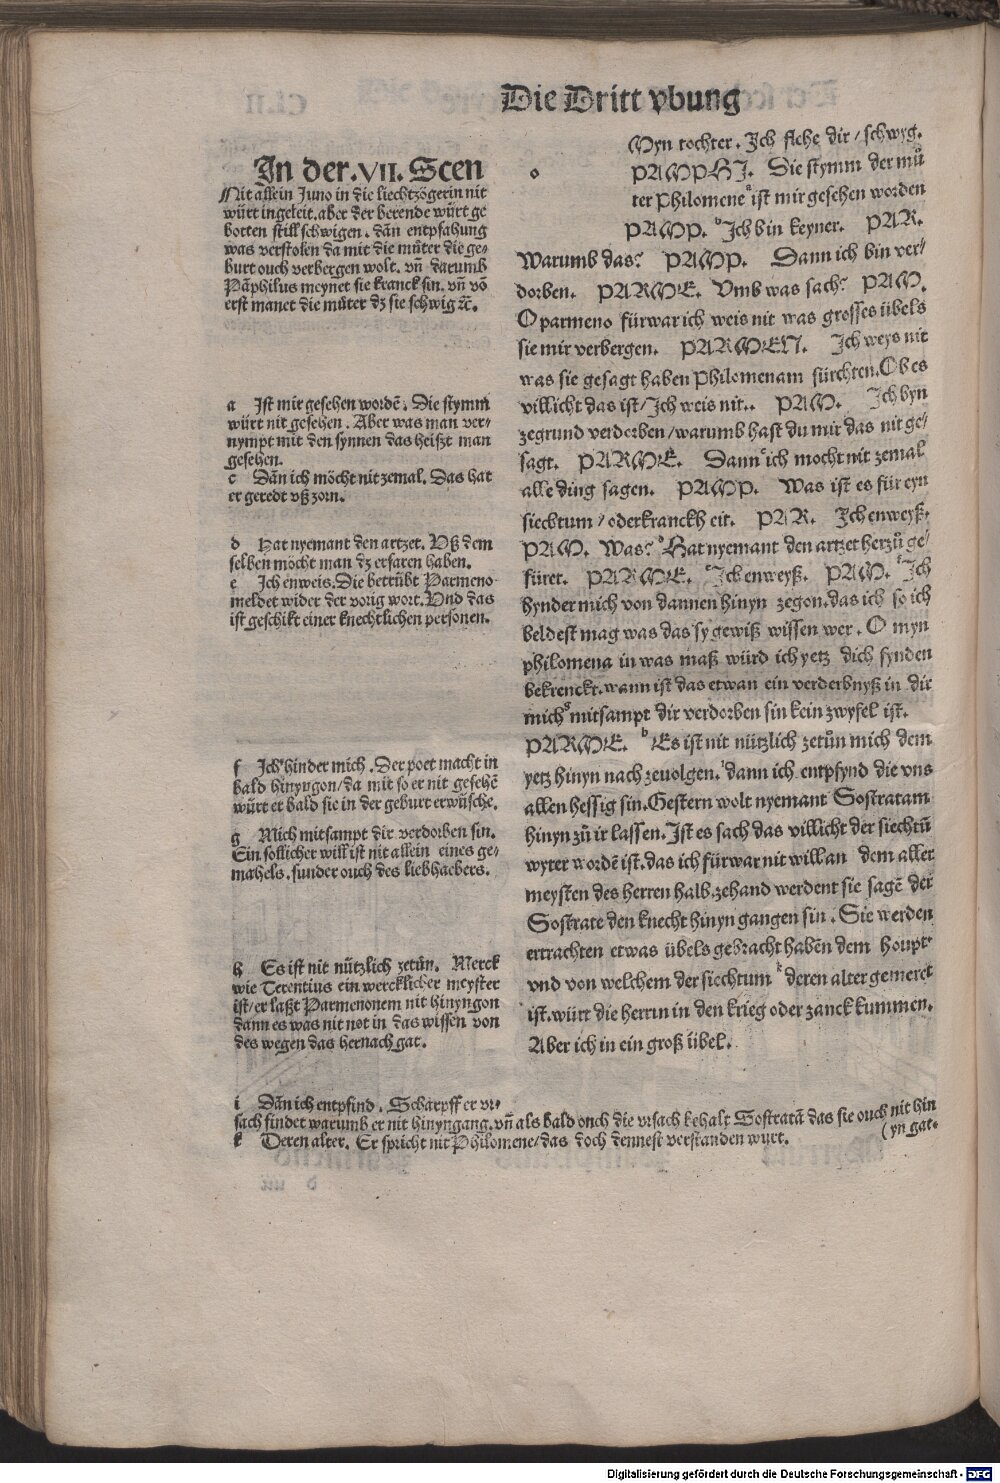 Die Dritt vbung
In der .VII. Scen
Nit allein Juno in die liechtzögerin nit
würt ingeleit. aber der berende würt ge
botten still schwigen. dañ entpfahung
was verstolen da mit die můter die ge-
burt ouch verbergen wolt. vñ darumb
Pãphilus meynet sie kranck sin. vñ võ
erst manet die můter dz sie schwig ꝛc̃.
a Ist mir gesehen wordẽ. Die stymm
würt nit gesehen. Aber was man ver-
nympt mit den synnen das heißt man
gesehen.
c Dañ ich möcht nit zemal. Das hat
er geredt vß zorn.
d Hat nyemant den artzet. Vß dem
selben möcht man dz erfaren haben.
e Ich enweis. Die betrübt Parmeno
meldet wider der vorig wort. Vnd das
ist geschikt einer knechtlichen personen.
f Ich hinder mich. Der poet macht in
bald hinyngon/da mit so er nit gesehẽ
würt er bald sie in der geburt erwüsche.
g Mich mitsampt dir verdorben sin.
Ein sollicher will ist nit allein eines ge-
mahels. sunder ouch des liebhabers.
h Es ist nit nützlich zetůn. Merck
wie Terentius ein wercklicher meyster
ist/er laßt Parmenonem nit hinyngon
dann es was nit not in das wissen von
des wegen das hernach gat.
o
Myn tochter. Ich flehe dir/schwyg.
PAMPHI. Die stymm der mů
ter Philomene a ist mir gesehen worden
PAMP. b Ich bin keyner. PAR.
Warumb das? PAMP. Dann ich bin ver/
dorben. PARME. Vmb was sach? PAM.
O parmeno fürwar ich weis nit was grosses übels
sie mir verbergen. PARMEN. Ich weys nit
was sie gesagt haben Philomenam fürchten. Ob es
villicht das ist/Ich weis nit.. PAM. Ich byn
zegrund verdorben/warumb hast du mir das nit ge/
sagt. PARME. Dann c ich mocht nit zemal
alle ding sagen. PAMP. Was ist es für eyn
siechtum/oder kranckheit. PAR. Ich enweyß.
PAM. Was? d Hat nyemant den artzet herzů ge/
füret. PARME. e Ich enweyß. PAM. f Ich
hynder mich von dannen hinyn zegon. das ich so ich
beldest mag was das sy gewiß wissen wer. O myn
philomena in was maß würd ich yetz dich fynden
bekrenckt. wann ist das etwan ein verderbnyß in dir
mich g mitsampt dir verdorben sin kein zwyfel ist.
PARME. h Es ist nit nützlich zetůn mich dem
yetz hinyn nach zeuolgen. i dann ich entpfynd die vns
allen hessig sin. Gestern wolt nyemant Sostratam
hinyn zů ir lassen. Ist es sach das villicht der siechtũ
wyter wordẽ ist. das ich fürwar nit will an dem aller
meysten des herren halb. zehand werdent sie sagẽ der
Sostrate den knecht hinyn gangen sin. Sie werden
ertrachten etwas übels gebracht haben dem houpt
vnd von welchem der siechtum k deren alter gemeret
ist. würt die herrin in den krieg oder zanck kummen.
Aber ich in ein groß übel.
i Dañ ich entpfind. Scharpff er vr-
sach findet warumb er nit hinyngang. vñ als bald ouch die vrsach behalt Sostratã das sie ouch nit hin
(yn gat.
k Deren alter. Er spricht nit Philomene/das doch dennest verstanden wurt.
Digitalisierung gefördert durch die Deutsche Forschungsgemeinschaft - DFG